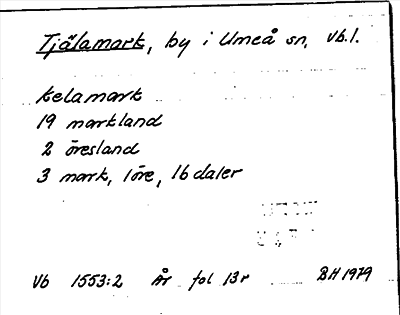 Tjälamark, by i Umeå sn, Vb.l.
kelamark
19 markland
2 öresland
3 mark, 1 öre, 16 daler
Vb 1553:2 År fol 13r BH 1979